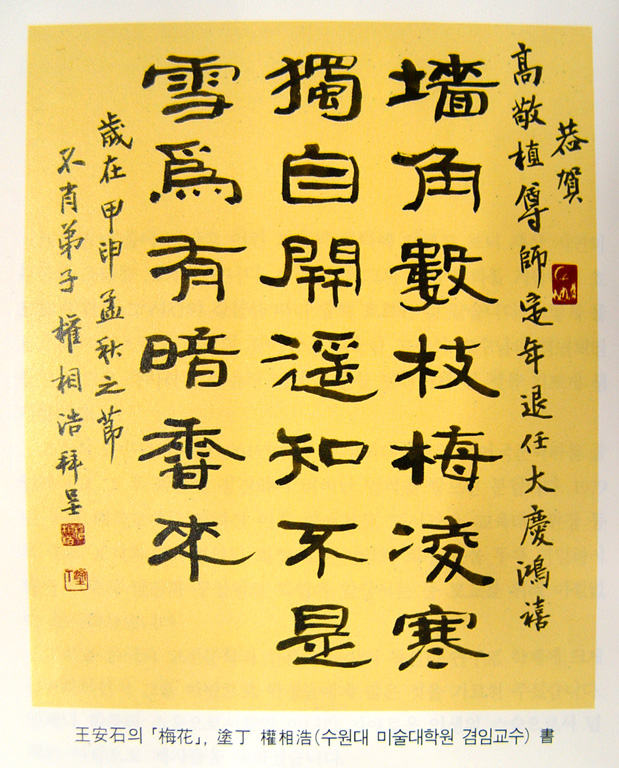 恭賀
高敬植尊師定年退任大慶鴻禧
墻角數枝梅凌寒
獨自開遥知不是
雪爲有暗香來
歲在甲申孟秋之節
不肖弟子權相浩拜呈
王安石의 「梅花」, 塗丁 權相浩(수원대 미술대학원 겸임교수) 書